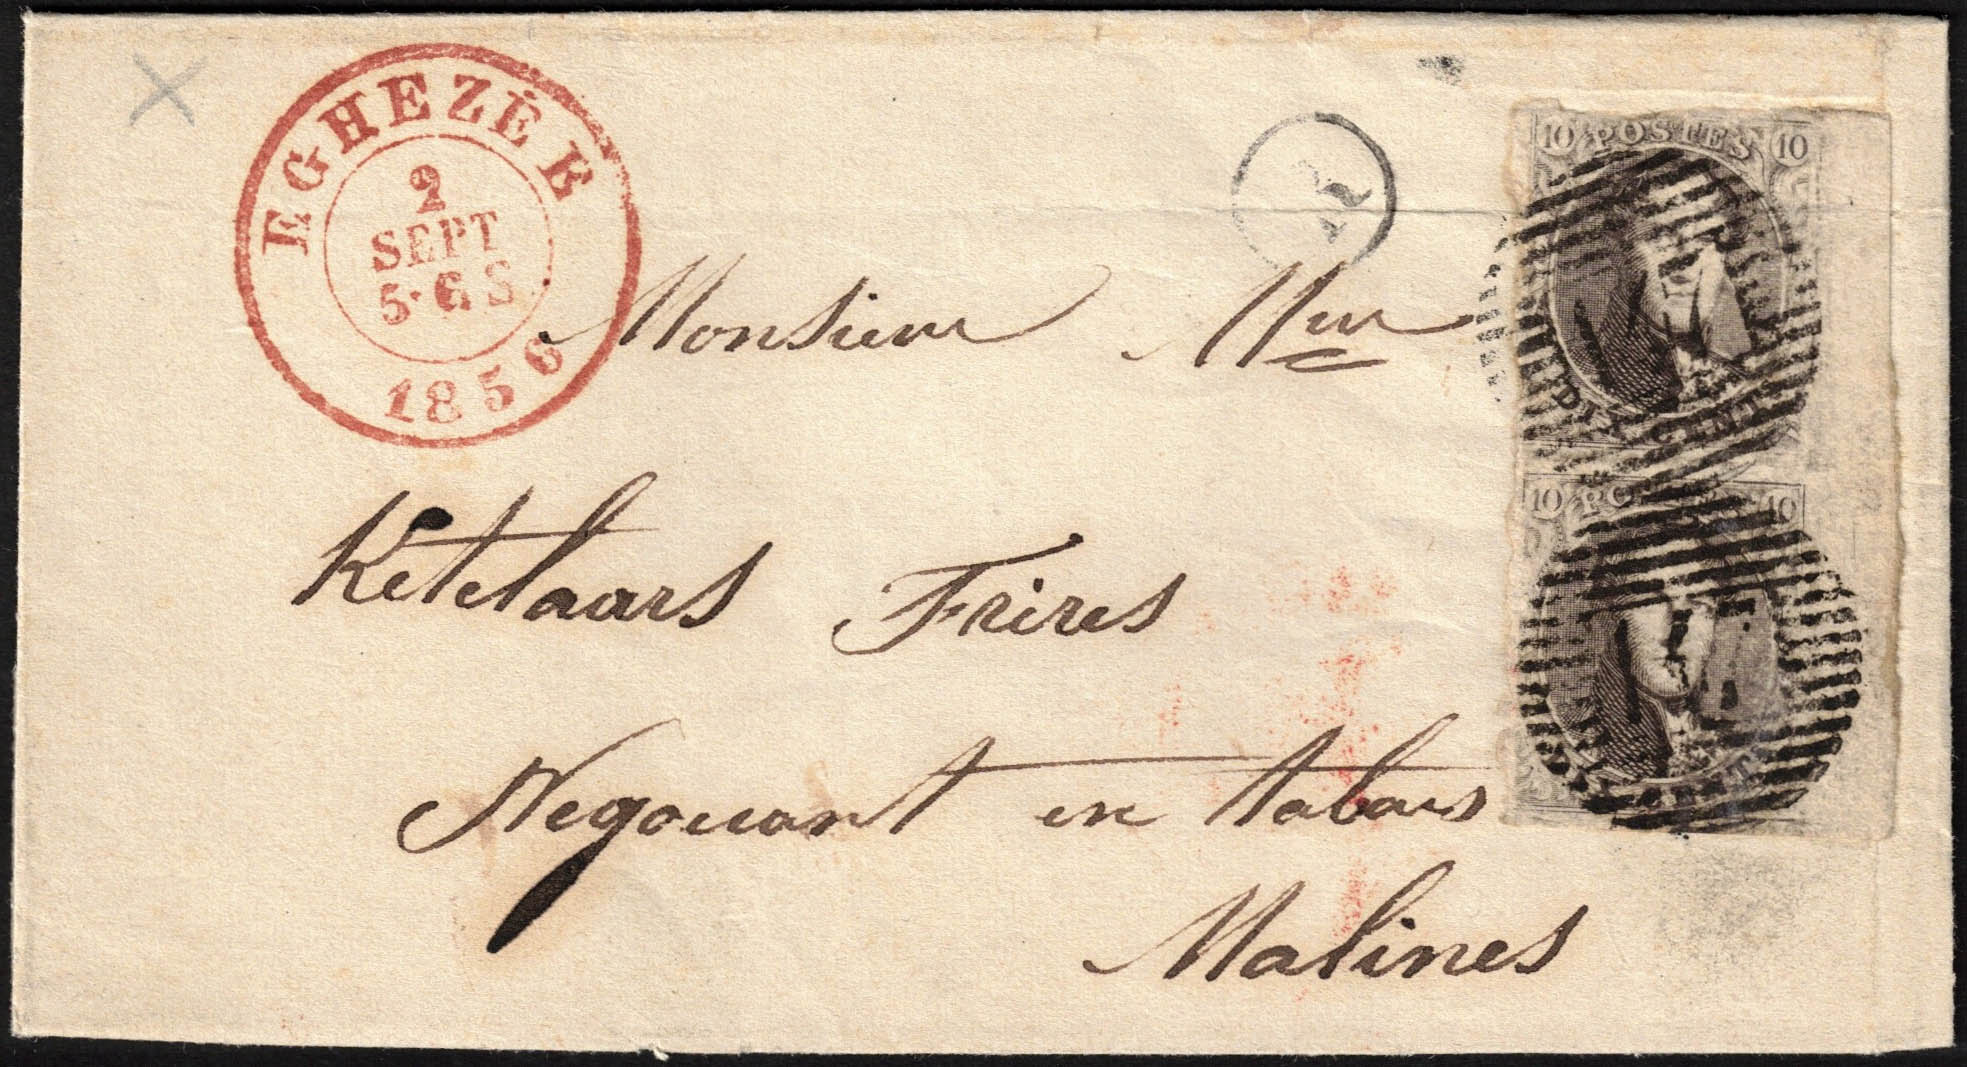 EGHEZÉE
2
SEPT
5·6 S
1856
10 POSTES 10
DIX CENT
10 10
Monsieur
Ketelaars Frères
Negociant en tabacs
Malines